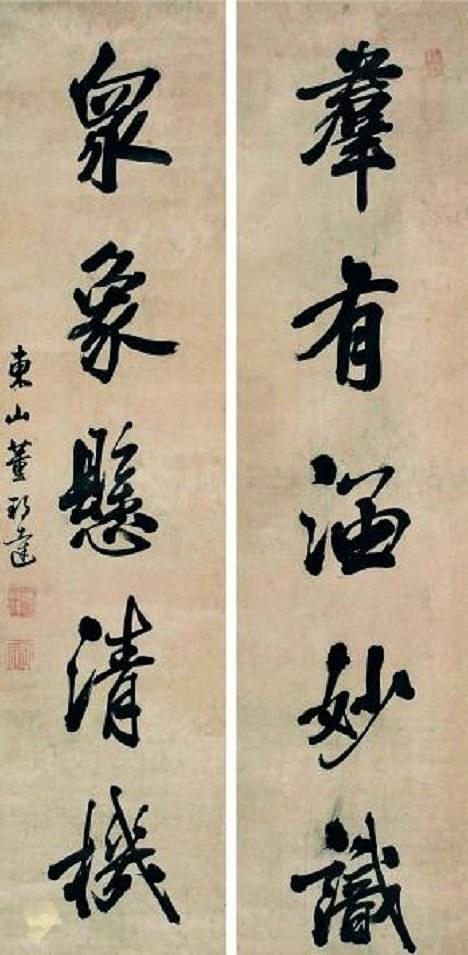 羣有涵妙識
衆象懸清機
東山董邦達